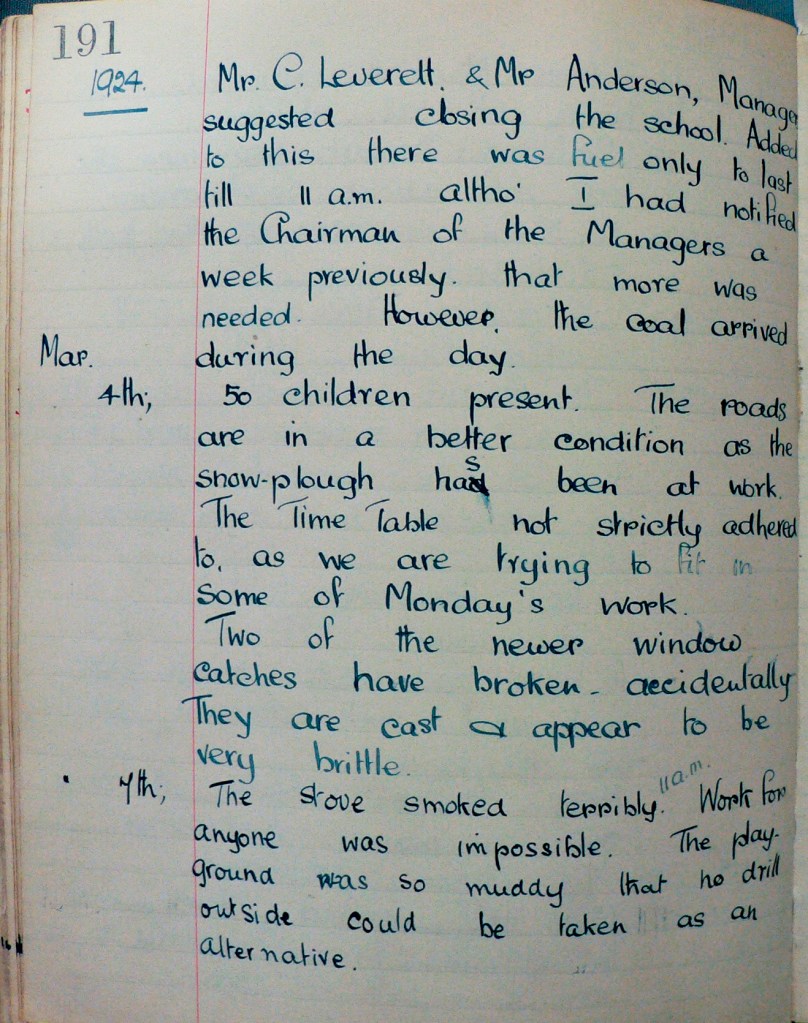 191
1924. Mr. C. Leverett. & Mr Anderson, Manager
suggested closing the school. Added
to this there was fuel only to last
till 11 a.m. altho' I had notified
the Chairman of the Managers a
week previously. that more was
needed. However, the coal arrived
Mar. during the day.
4th; 50 children present. The roads
are in a better condition as the
snow-plough has been at work.
The Time Table not strictly adhered
to, as we are trying to fit in
some of Monday's work.
Two of the newer window
catches have broken - accidentally
They are cast & appear to be
very brittle.
7th; The stove smoked terribly. 11 a.m. Work for
anyone was impossible. The play-
ground was so muddy that no drill
outside could be taken as an
alternative.